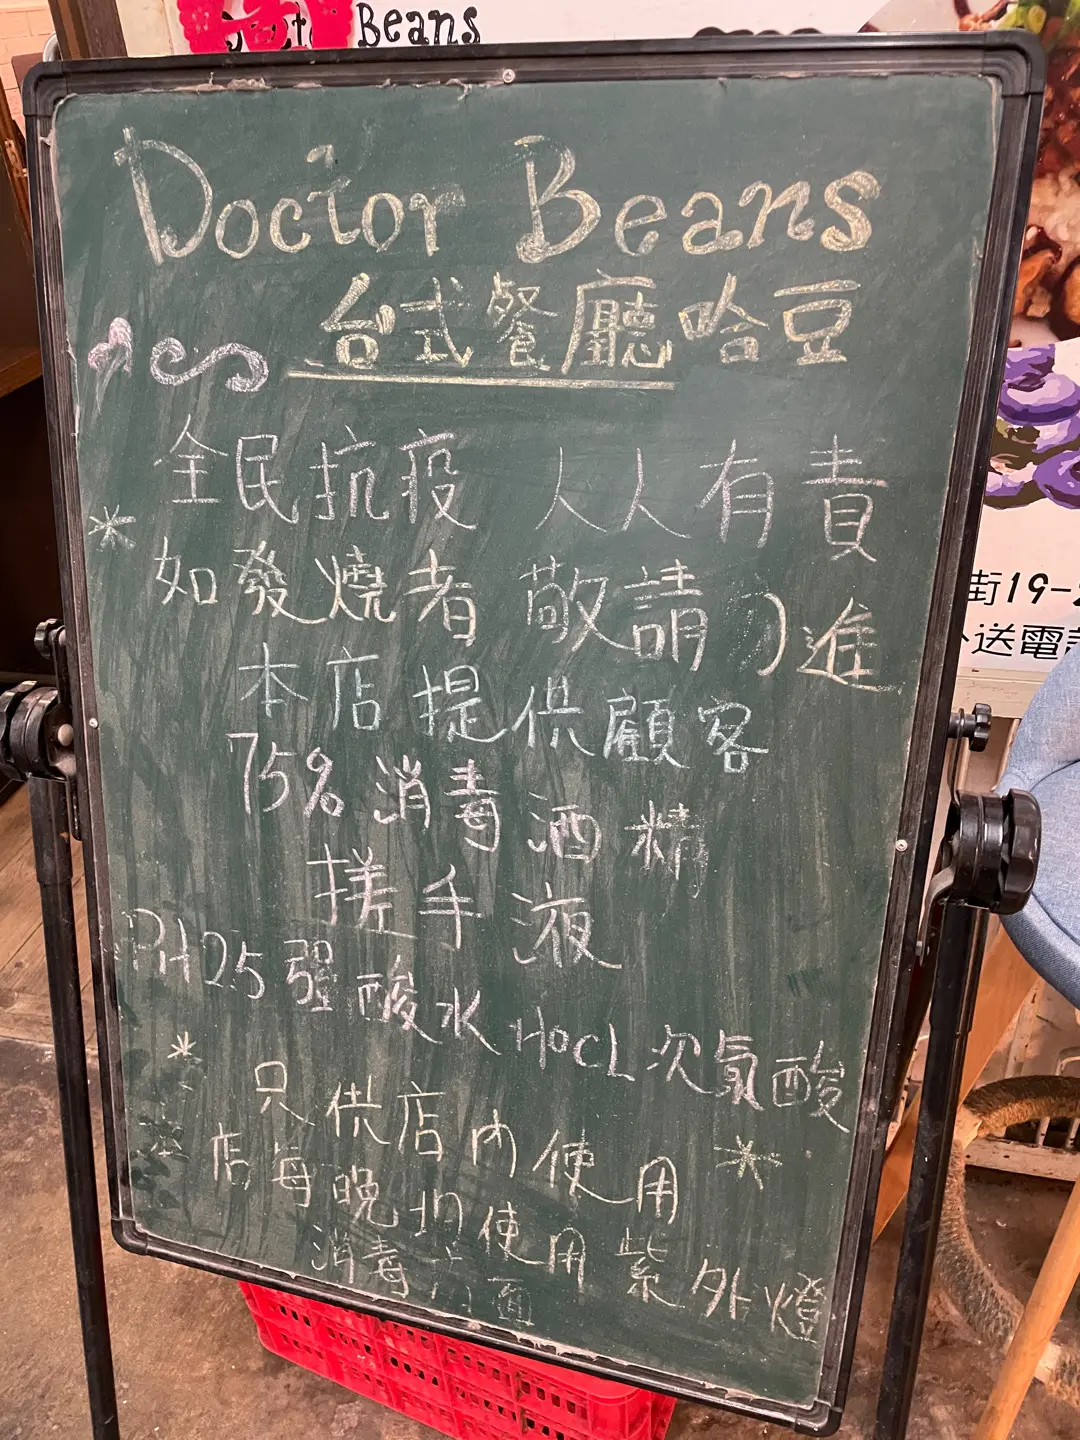 Beans
Doctor Beans
台式餐廳哈豆
全民抗疫 人人有責
如發燒者 敬請勿進
本店提供顧客
75%消毒酒精
搓手液
PH2.5強酸水 HOCL次氯酸
只供店內使用
店每晚均使用紫外燈
消毒店面
街19-
外送電話